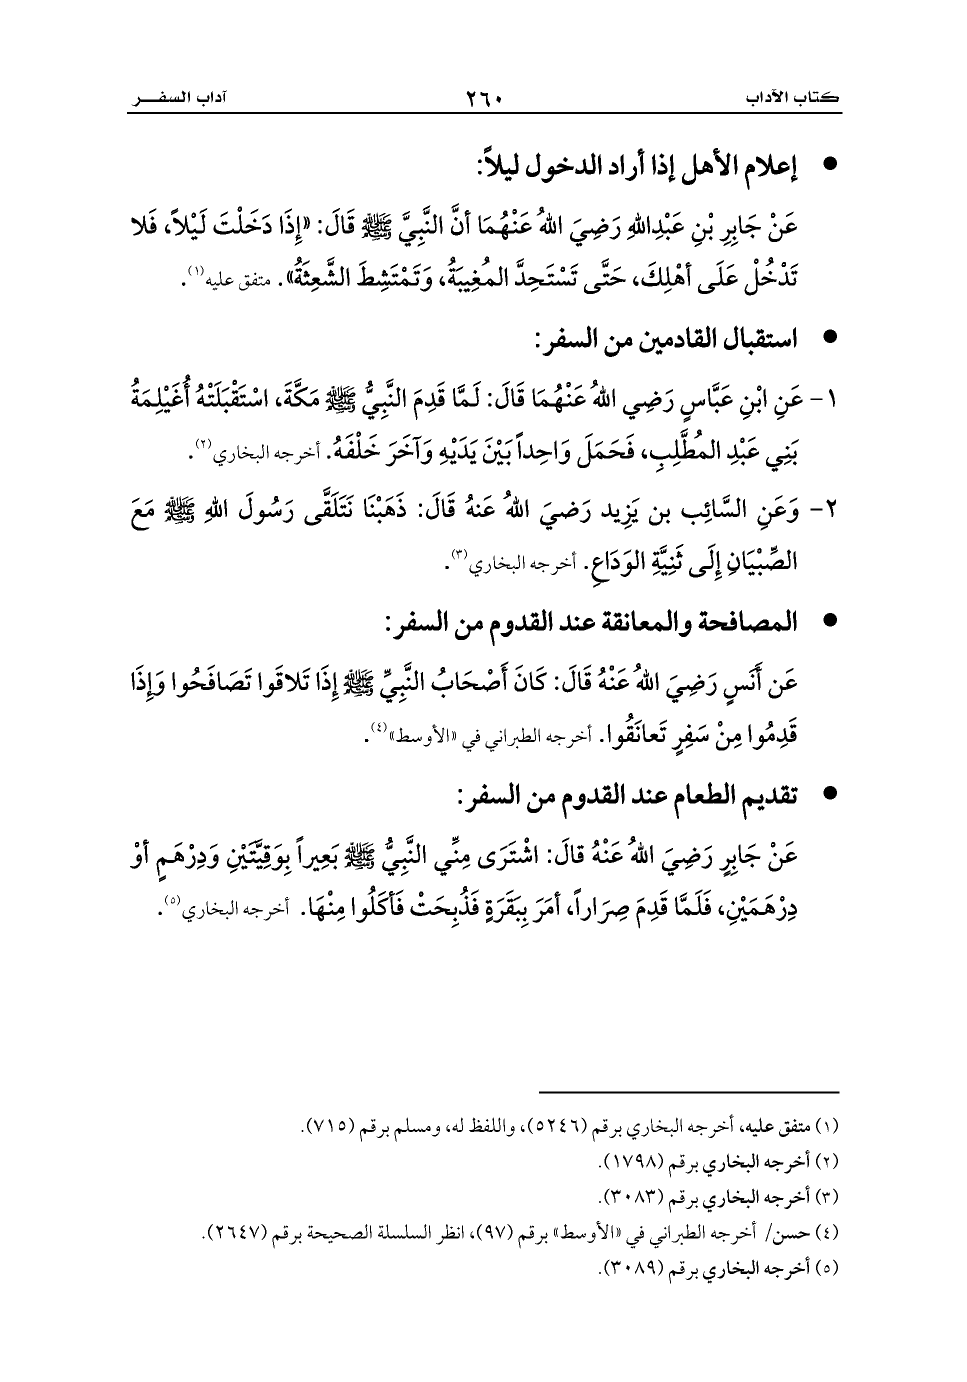 كتاب الآداب ٢٦٠ آداب السفـــر
● إعلام الأهل إذا أراد الدخول ليلاً:
عَنْ جَابِرِ بْنِ عَبْدِاللهِ رَضِيَ اللهُ عَنْهُمَا أنَّ النَّبِيَّ ﷺ قَالَ: «إِذَا دَخَلْتَ لَيْلاً، فَلا
تَدْخُلْ عَلَى أهْلِكَ، حَتَّى تَسْتَحِدَّ المُغِيبَةُ، وَتَمْتَشِطَ الشَّعِثَةُ». متفق عليه(١).
● استقبال القادمين من السفر:
١- عَنِ ابْنِ عَبَّاسٍ رَضِي اللهُ عَنْهُمَا قَالَ: لَـمَّا قَدِمَ النَّبِيُّ ﷺ مَكَّةَ، اسْتَقْبَلَتْهُ أُغَيْلِمَةُ
بَنِي عَبْدِ المُطَّلِبِ، فَحَمَلَ وَاحِداً بَيْنَ يَدَيْهِ وَآخَرَ خَلْفَهُ. أخرجه البخاري(٢).
٢- وَعَنِ السَّائِب بن يَزِيد رَضيَ اللهُ عَنهُ قَالَ: ذَهَبْنَا نَتَلَقَّى رَسُولَ اللهِ ﷺ مَعَ
الصِّبْيَانِ إِلَى ثَنِيَّةِ الوَدَاعِ. أخرجه البخاري(٣).
● المصافحة والمعانقة عند القدوم من السفر:
عَن أَنَسٍ رَضِيَ اللهُ عَنْهُ قَالَ: كَانَ أَصْحَابُ النَّبِيِّ ﷺ إِذَا تَلاقَوا تَصَافَحُوا وَإِذَا
قَدِمُوا مِنْ سَفِرٍ تَعانَقُوا. أخرجه الطبراني في «الأوسط»(٤).
● تقديم الطعام عند القدوم من السفر:
عَنْ جَابِرٍ رَضِيَ اللهُ عَنْهُ قالَ: اشْتَرَى مِنِّي النَّبِيُّ ﷺ بَعِيراً بِوَقِيَّتَيْنِ وَدِرْهَمٍ أوْ
دِرْهَمَيْنِ، فَلَمَّا قَدِمَ صِرَاراً، أمَرَ بِبَقَرَةٍ فَذُبِحَتْ فَأكَلُوا مِنْهَا. أخرجه البخاري(٥).
(١) متفق عليه، أخرجه البخاري برقم (٥٢٤٦)، واللفظ له، ومسلم برقم (٧١٥).
(٢) أخرجه البخاري برقم (١٧٩٨).
(٣) أخرجه البخاري برقم (٣٠٨٣).
(٤) حسن/ أخرجه الطبراني في «الأوسط» برقم (٩٧)، انظر السلسلة الصحيحة برقم (٢٦٤٧).
(٥) أخرجه البخاري برقم (٣٠٨٩).